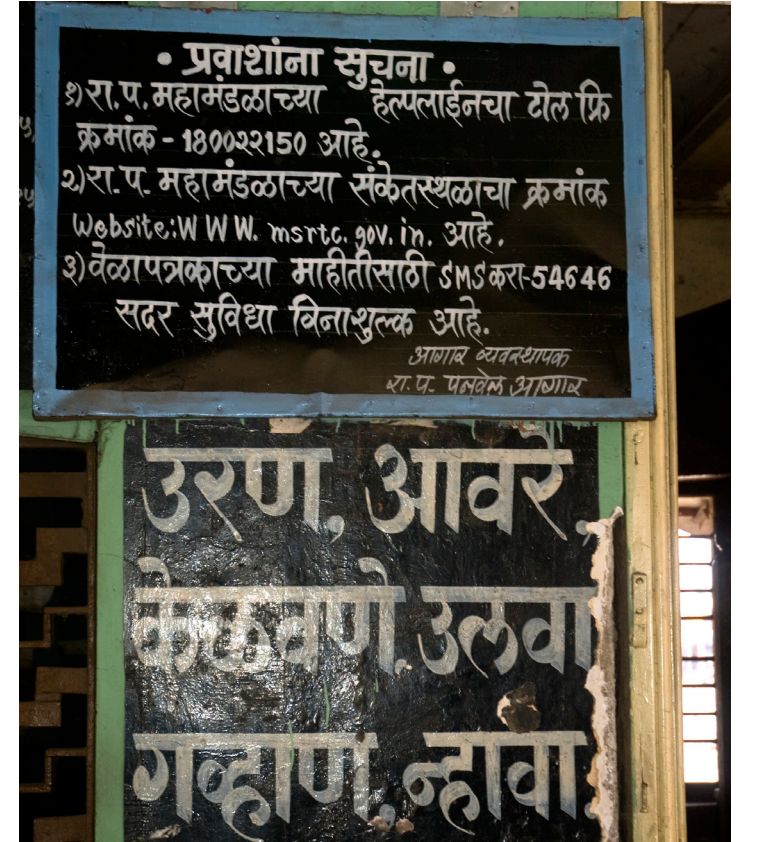 • प्रवाशांना सुचना •
१) रा.प. महामंडळाच्या हेल्पलाईनचा टोल फ्रि
क्रमांक - 180022150 आहे.
२) रा.प. महामंडळाच्या संकेतस्थळाचा क्रमांक
Website: WWW. msrtc. gov. in. आहे.
३) वेळापत्रकाच्या माहीतीसाठी SMS करा-54646
सदर सुविधा विनाशुल्क आहे.
आगार व्यवस्थापक
रा.प. पनवेल आगार
उरण, आवरे,
केळवणे, उलवा
गव्हाण, न्हावा,